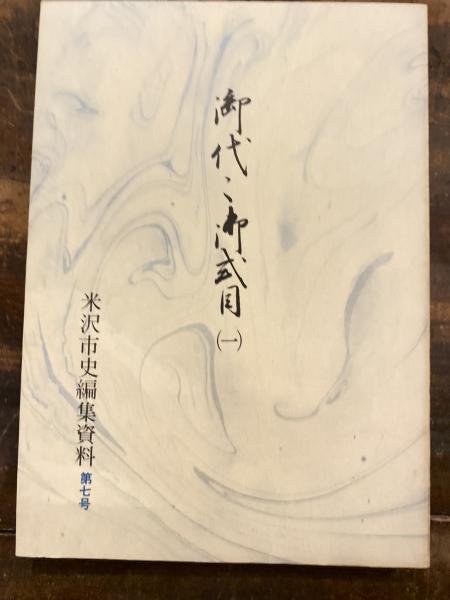 御代々御式目(一)
米沢市史編集資料 第七号